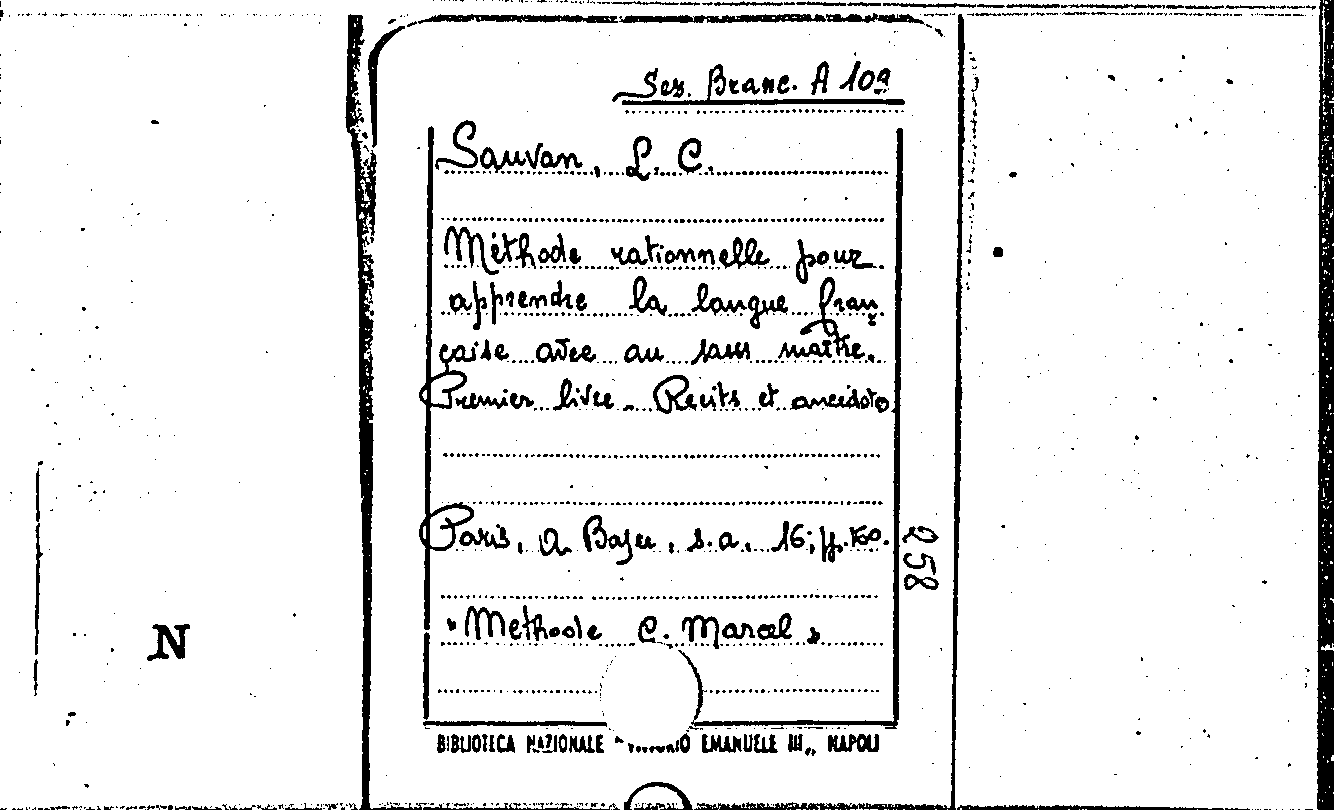 Sez. Branc. A 109
Sauvan, L. C.
Méthode rationnelle pour
apprendre la langue fran
çaise avec au sans maître.
Premier livre. Recits et anecdote
Paris, A. Boyer, s.a. 16; pp. 160.
258
"Methode C. Marcel"
N
BIBLIOTECA NAZIONALE " VITTORIO EMANUELE III,, NAPOLI